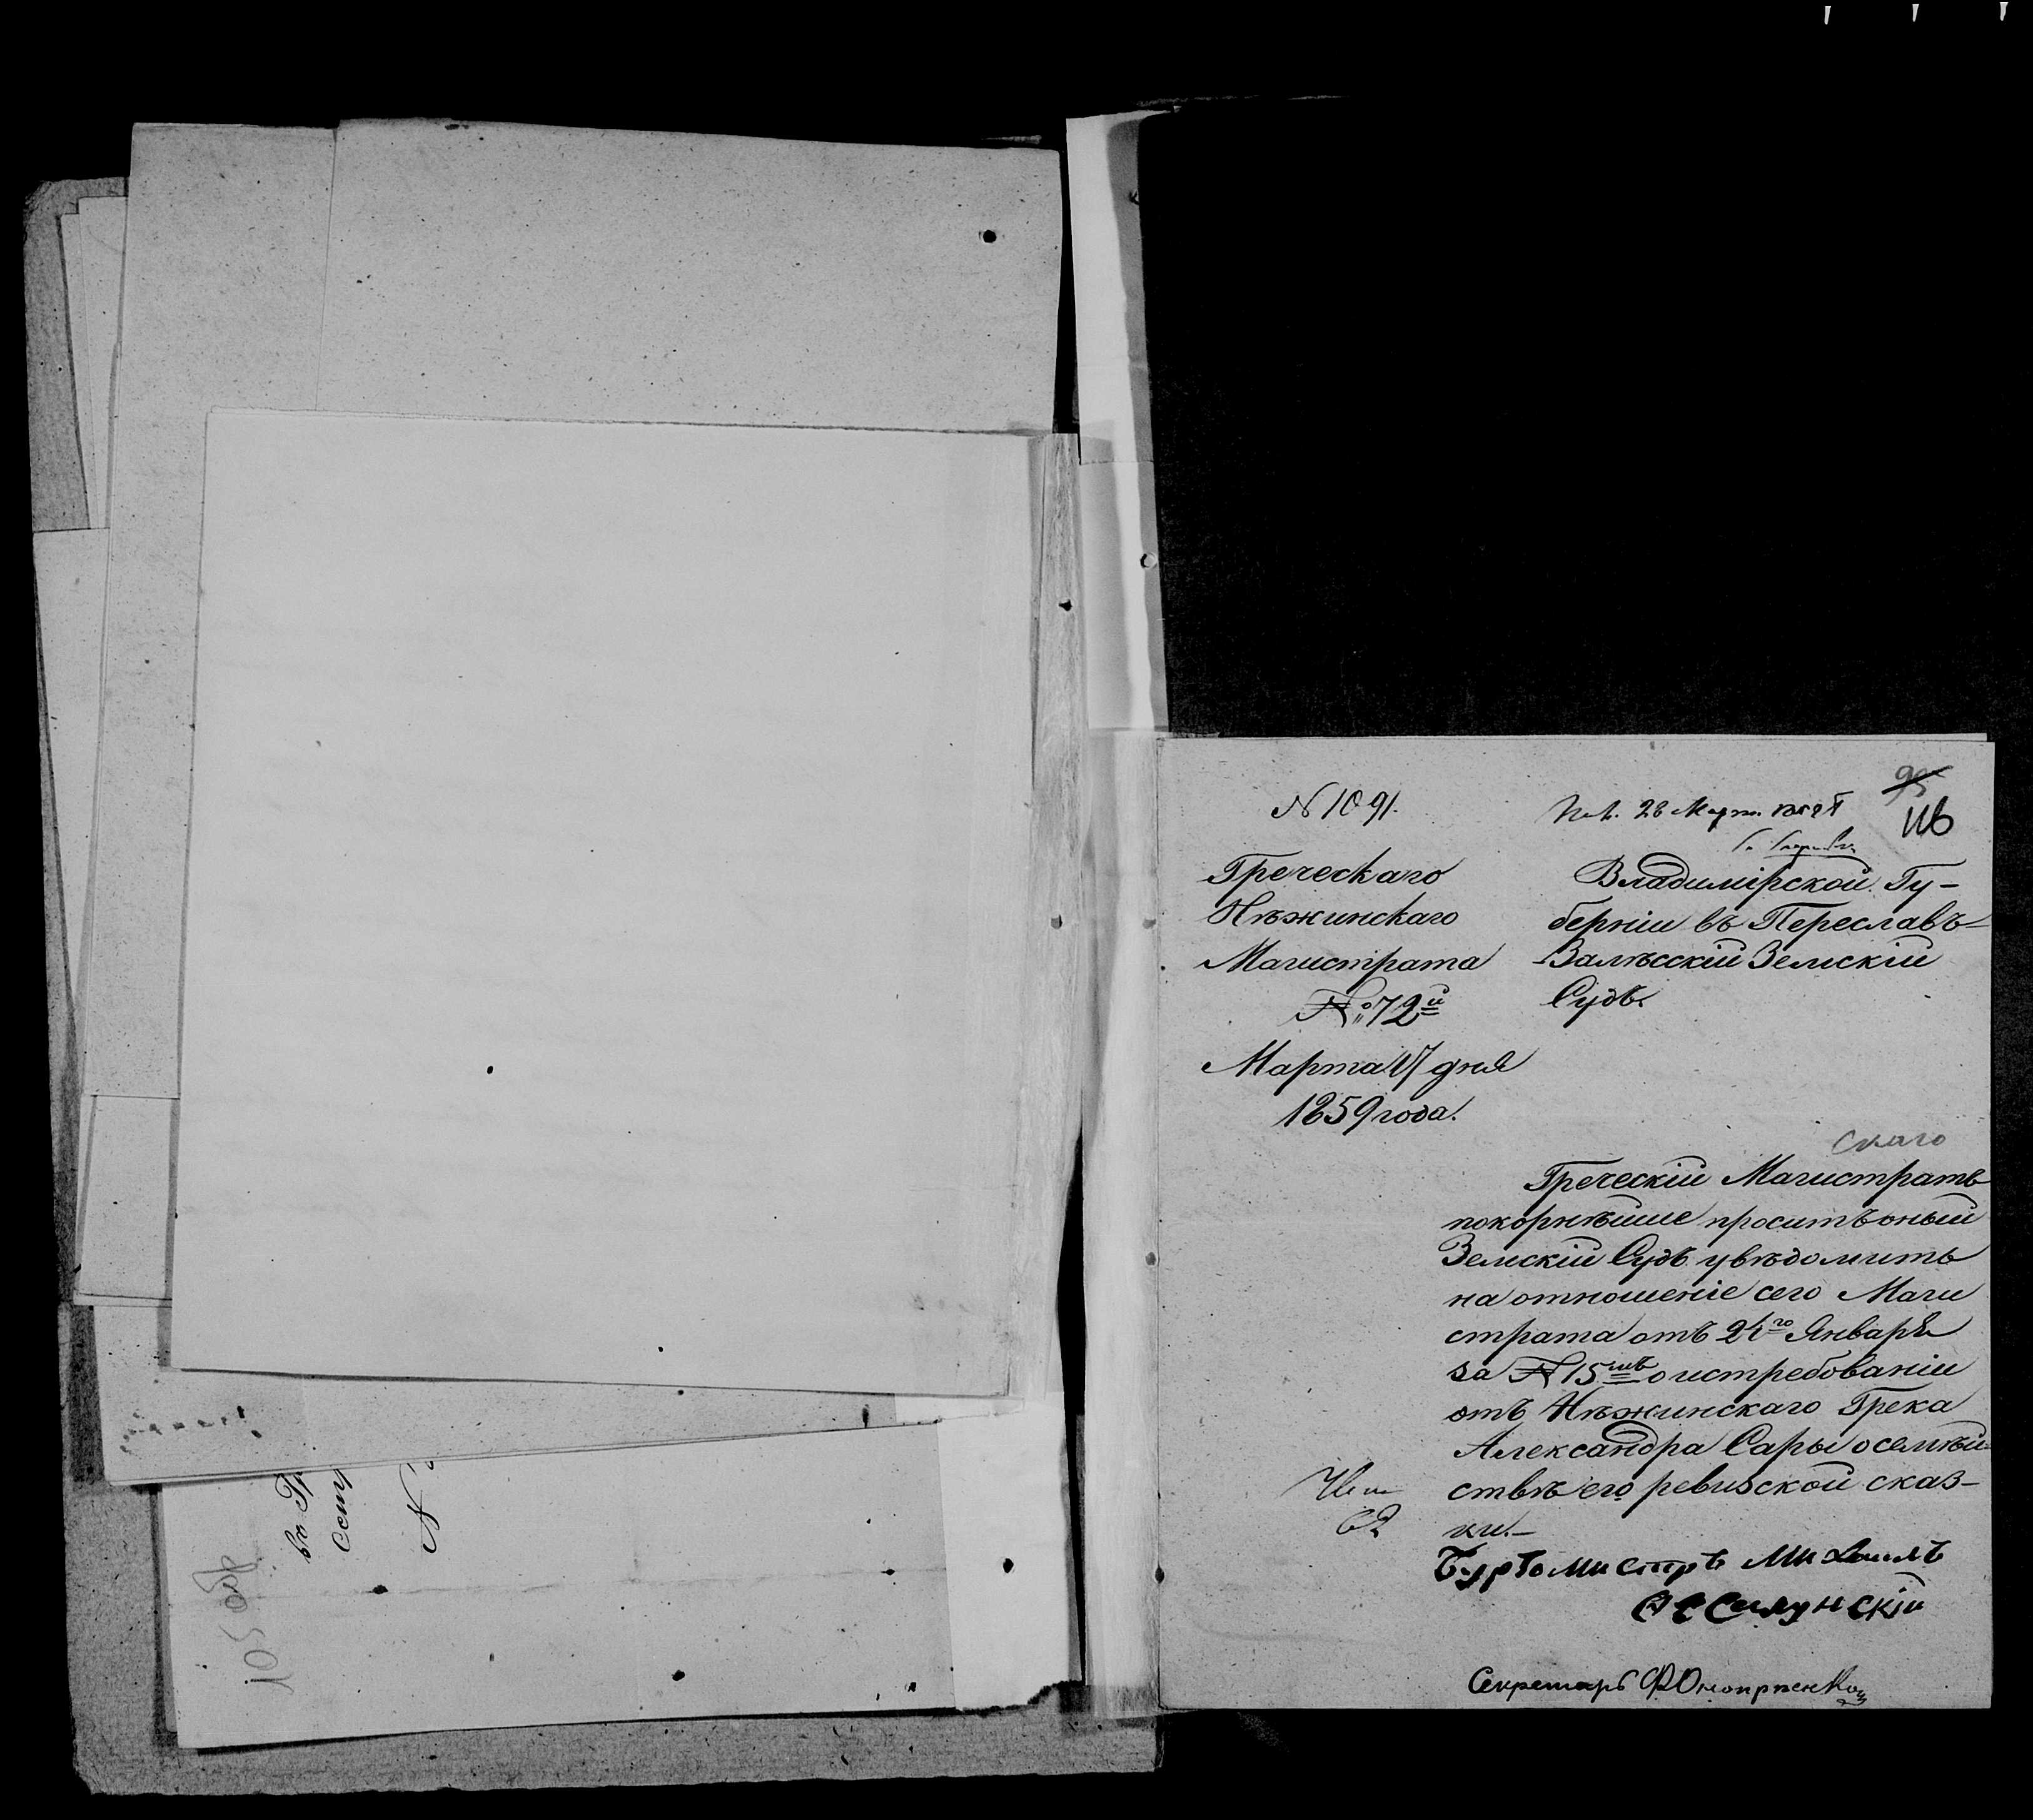 N 1091.
28 Март.
95
116
Греческаго
Нѣжинскаго
Магистрата
№ 72й
Марта 17 дня
1859 года.
Владимірской Гу-
берніи въ Переславъ-
Залѣсскій Земскій
Судъ.
скаго
Греческій Магистратъ
покорнѣйше проситъ оный
Земскій Судъ увѣдомить
на отношеніе сего Маги
страта отъ 24го Января
за № 15мъ о истребованіи
отъ Нѣжинскаго Грека
Александра Сары о семѣй-
ствѣ его ревизской сказ-
ки.-
Бургомистръ Михаилъ
Секретарь Ф Оноприенко
105 об
въ Гр
N